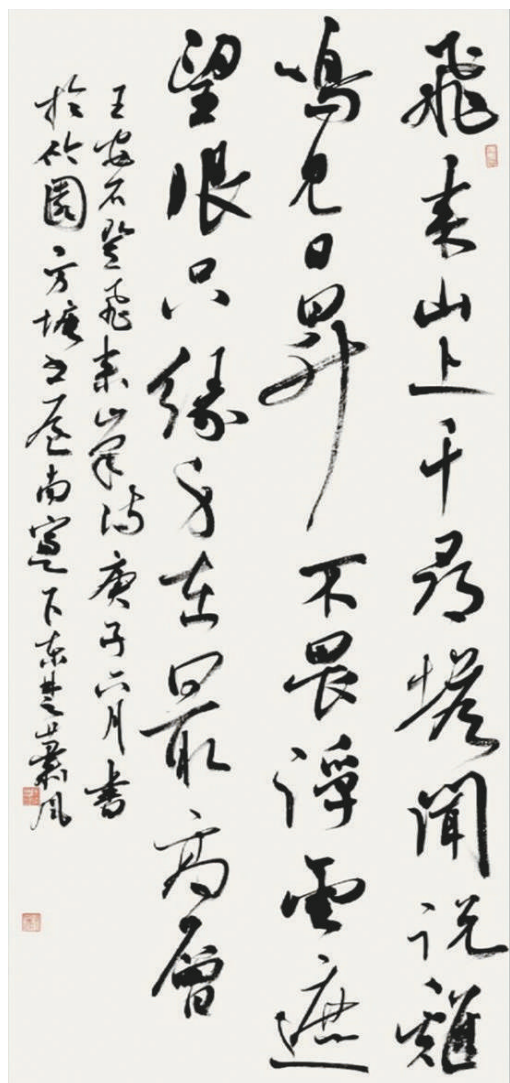 飛来山上千尋塔聞説雞
鳴見日昇不畏浮雲遮
望眼只緣身在最高層
王安石登飛来峯诗庚子六月書
於竹園方塘书屋南窗下东楚蕭风